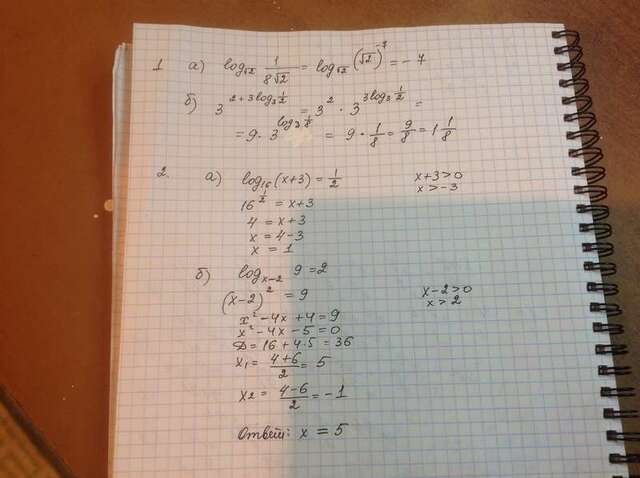 1 а) log_√2 1/(8√2) = log_√2 (√2)^-7 = -7
б) 3^(2+3log_3 1/2) = 3^2 · 3^(3log_3 1/2) =
= 9 · 3^(log_3 1/8) = 9 · 1/8 = 9/8 = 1 1/8
2. а) log_16 (x+3) = 1/2 x+3>0
16^(1/2) = x+3 x>-3
4 = x+3
x = 4-3
x = 1
б) log_x-2 9 = 2
(x-2)^2 = 9 x-2>0
x^2-4x+4=9 x>2
x^2-4x-5=0
D = 16+4·5=36
x1 = (4+6)/2 = 5
x2 = (4-6)/2 = -1
Ответ: x = 5